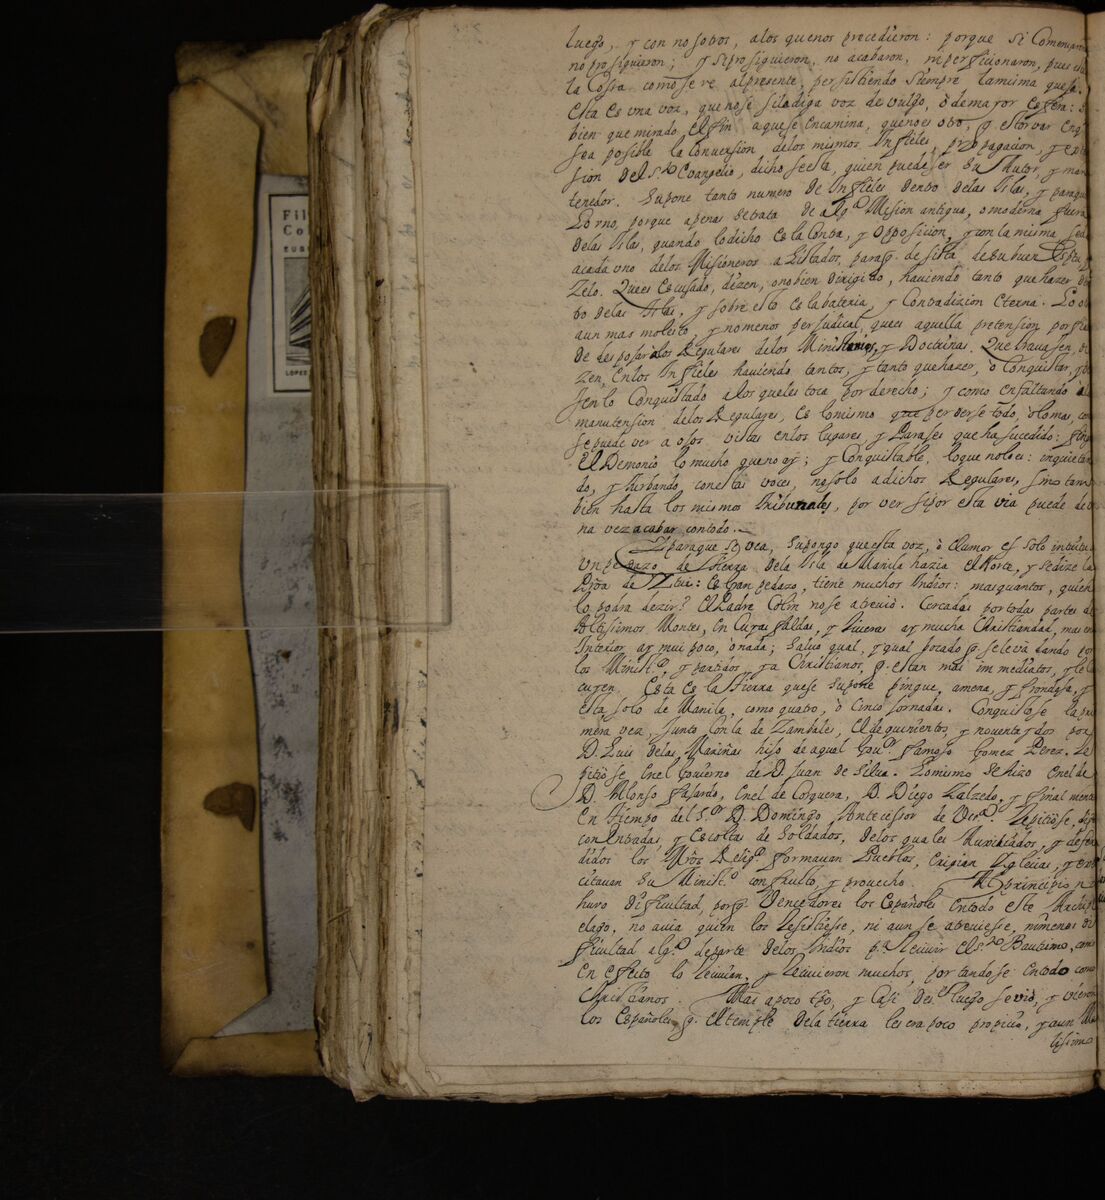 Fil
Co
LOPEZ
luego, y con nosotros, a los que nos precedieron: porque si Comenzaron
no prosiguieron; y si prosiguieron, no acabaron, ni perficionaron, pues está
la Cosa como se ve al presente, persistiendo siempre la misma
Esta es una voz, que no sé si la diga voz de vulgo, ò de mayor esfera: si
bien que mirado el fin a que se encamina, que no es otro, q. estorvar
sea posible la Conversion de los mismos Infieles, propagacion, y
sion del S.to Evangelio, dicho se está, quien puede ser su Autor, y man
tenedor. Supone tanto numero de Infieles dentro de las Islas, y paraq
Lo no, porque apenas se trata de alg.a Mision antigua, o moderna fuera
de las Islas, quando lo dicho es la Contra, y opposicion, y con la misma
a cada uno de los Misioneros Alistados, paraq. desista de su buen
Zelo. Que es escusado, dizen, o no bien dirigido, haviendo tanto que hazer
tro de las Islas, y sobre esto es la bateria, y Contradizion Eterna. Lo
aun mas molesto, y no menos perjudicial, que es aquella pretension
de desposar a los Regulares de los Ministerios, y Doctrinas. Que travasen, di
zen, en los Infieles haviendo tantos, y tanto que hazer, ò Conquistar, y
sen lo Conquistado a los queles toca por derecho; y como en faltando
manutension de los Regulares, es lo mismo que perderse todo, ò lo mas, co
se puede ver a ojos vistas en los lugares, y Parajes que ha sucedido:
El Demonio lo mucho que no ay; y Conquistable, lo que no lo es: inquietan
do, y turbando, con estas voces, no solo a dichos Regulares, sino tam
bien hasta los mismos Tribunales, por ver si por esta via puede de
na vez acabar con todo.
Y paraque se vea, supongo que esta voz, ò Clumor es solo
Un pedazo de tierra de la Isla de Manila hazia el Norte, y se dize la
de Ytui: Es gran pedazo, tiene muchos Indios: mas quantos, quien
lo podra dezir? El Padre Colin no se atrevió. Cercadas por todas partes de
Altissimos Montes, en Cuyas faldas, y riveras ay mucha Christiandad, mas en
Interior ay mui poco, ò nada; salvo qual, y qual pozado q. se le va dando por
los Minist.s y partidos ya Christianos, q. estan mas immediatos,
cuyen. Esta es la tierra que se supone pingue, amena, y frondosa, y
esta solo de Manila, como quatro, ò cinco jornadas. Conquistòse la pri
mera vez, junto con la de Zambales, el de quinientos, y noventa y dos por
D. Luis de las Mariñas hijo de aquel Gov.r famoso Gomez Perez. Re
pitiòse en el Govierno de D. Juan de Silva. Lo mismo se hizo en el de
D. Alonso Fajardo, en el de Corquera, D. Diego Zalzedo, y finalmente
En tiempo del S.r D. Domingo Antecessor de Repitiòse, digo
con Entradas, y Escoltas de Soldados, de los quales Auxiliados, y defen
didos los Ntros Relig.s formavan Pueblos, Erigian Yglesias, y exer
citavan su Minist.o con fruto, y provecho. Al principio n
huvo dificultad, porq. Vencedores los Españoles en todo este Archipi
elago, no avia quien los resistiesse, ni aun se atreviesse, ni menos di
ficultad alg.a de parte de los Indios p.a recivir el S.to Bautismo, como
en efeito lo recivian, y recivieron muchos, portandose en todo como
Christianos. Mas a poco tpo, y casi desde luego se vió, y vieron
los Españoles q. el temple de la tierra les era poco propicio, y aun Ma
lisimo